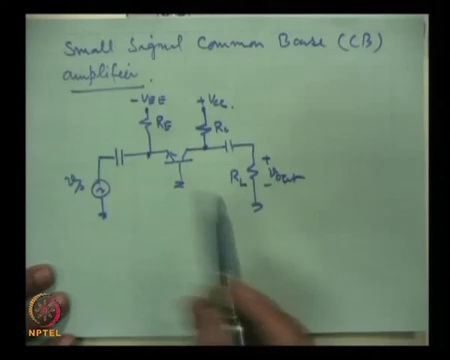 Small Signal Common Base (CB)
amplifier.
-VEE +VCC
RE RC
vs RL + vout -
NPTEL